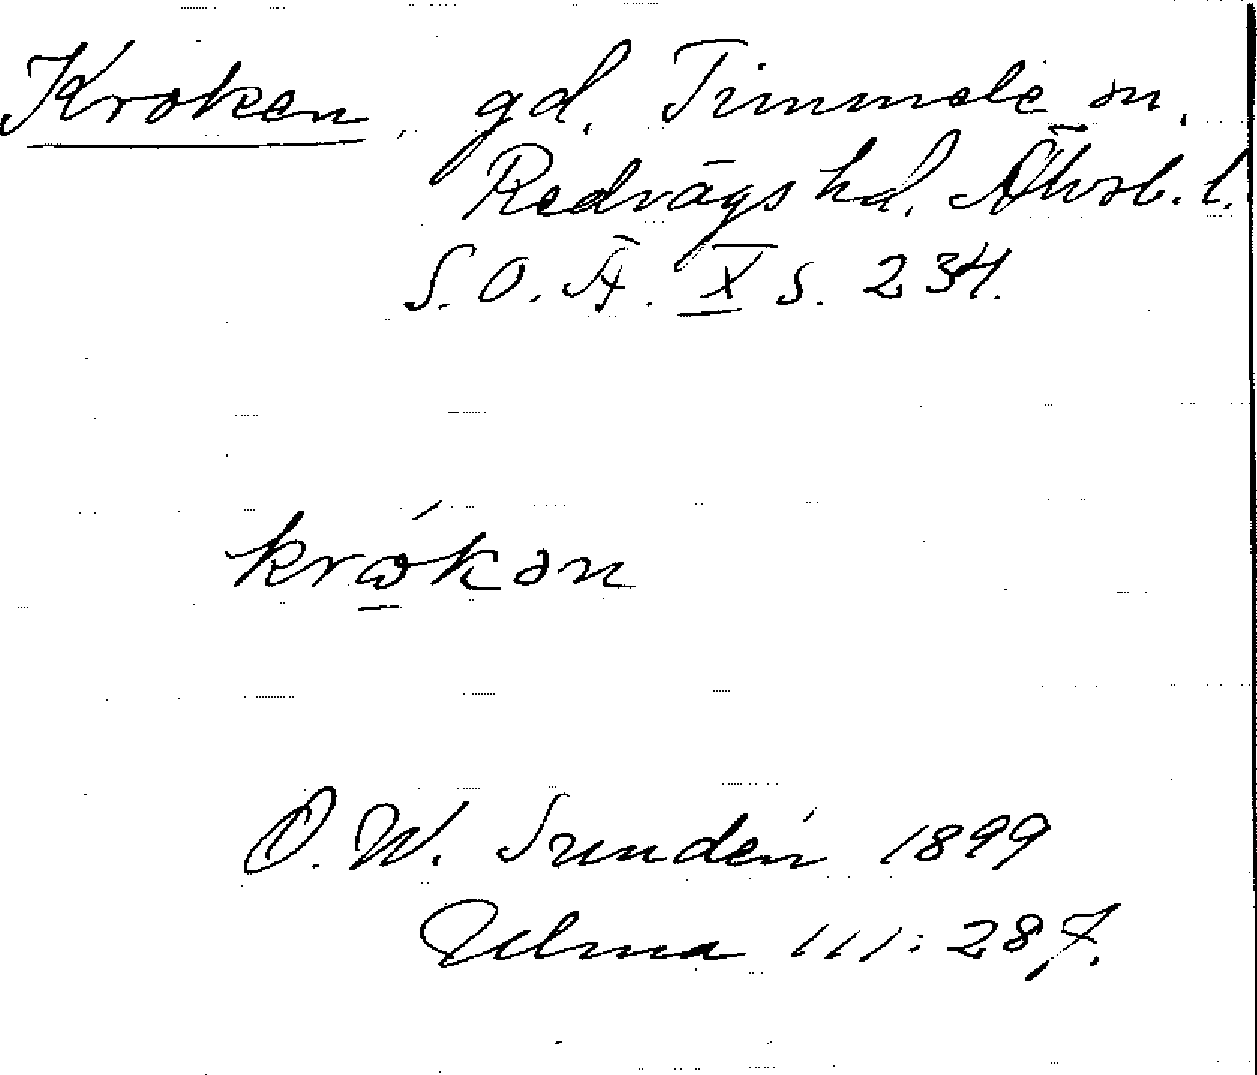 Kroken, gd, Timmele sn,
Redvägs hd, Älvsb. l.
S.O.Ä. X s. 234.
krókən
O. W. Sundén 1899
Ulma 111:287.